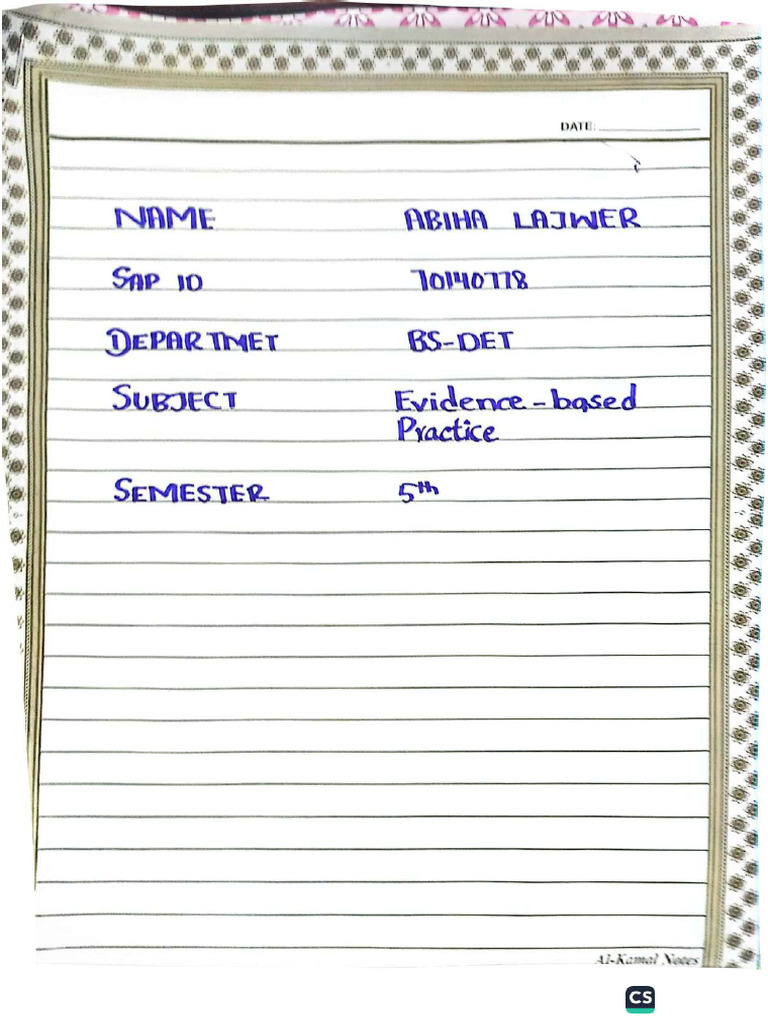 DATE:
NAME ABIHA LAJWER
SAP ID 70140778
DEPARTMET BS-DET
SUBJECT Evidence-based
Practice
SEMESTER 5th
Al-Kamal Notes
CS